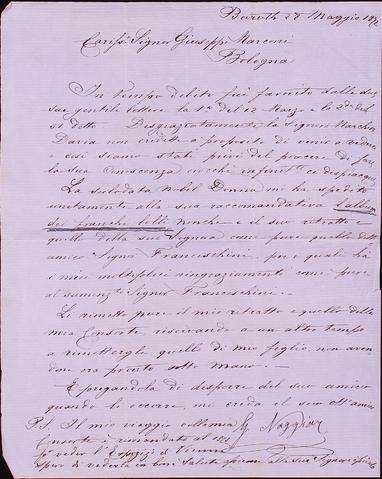 Beiruth 28 Maggio 187
Cariss. Signor Giuseppe Marconi
Bologna
In tempo debito fui favorito dalle di
sue gentile lettere la 1a del 12 Marzo e la 2da del
31 detto. Disgraziatamente la Signora
Daria non credette a proposito di venir a
e così siamo stati privi del piacere di far
la sua Conoscenza ci dispiacque
La sulodata Nobil Donna mi ha spedito
unitamente alla sua raccomandativa l'album
dei franchi bolli nonche e il suo ritratto e
quello della sua Signora come pure quello dell'
amico Signor Franceschini per i quali ha
i miei molteplici ringraziamenti come pure
al sumenzto Signor Franceschini.
Le rimetto pure il mio ritratto e quello della
mia Consorte, riservando a un altro tempo
a rimettergli quello di mio foglio, non aven-
done ora pronto sotto mano.
E pregandola di disporre del suo amico
quando li occorre, mi creda il suo Aff. amico
P.S. Il mio viaggio colla mia G Naggiar
Consorte è rimandato al 187
per veder l'Espoziz di Vienna
spero di vederla in boni salute la sua Signora